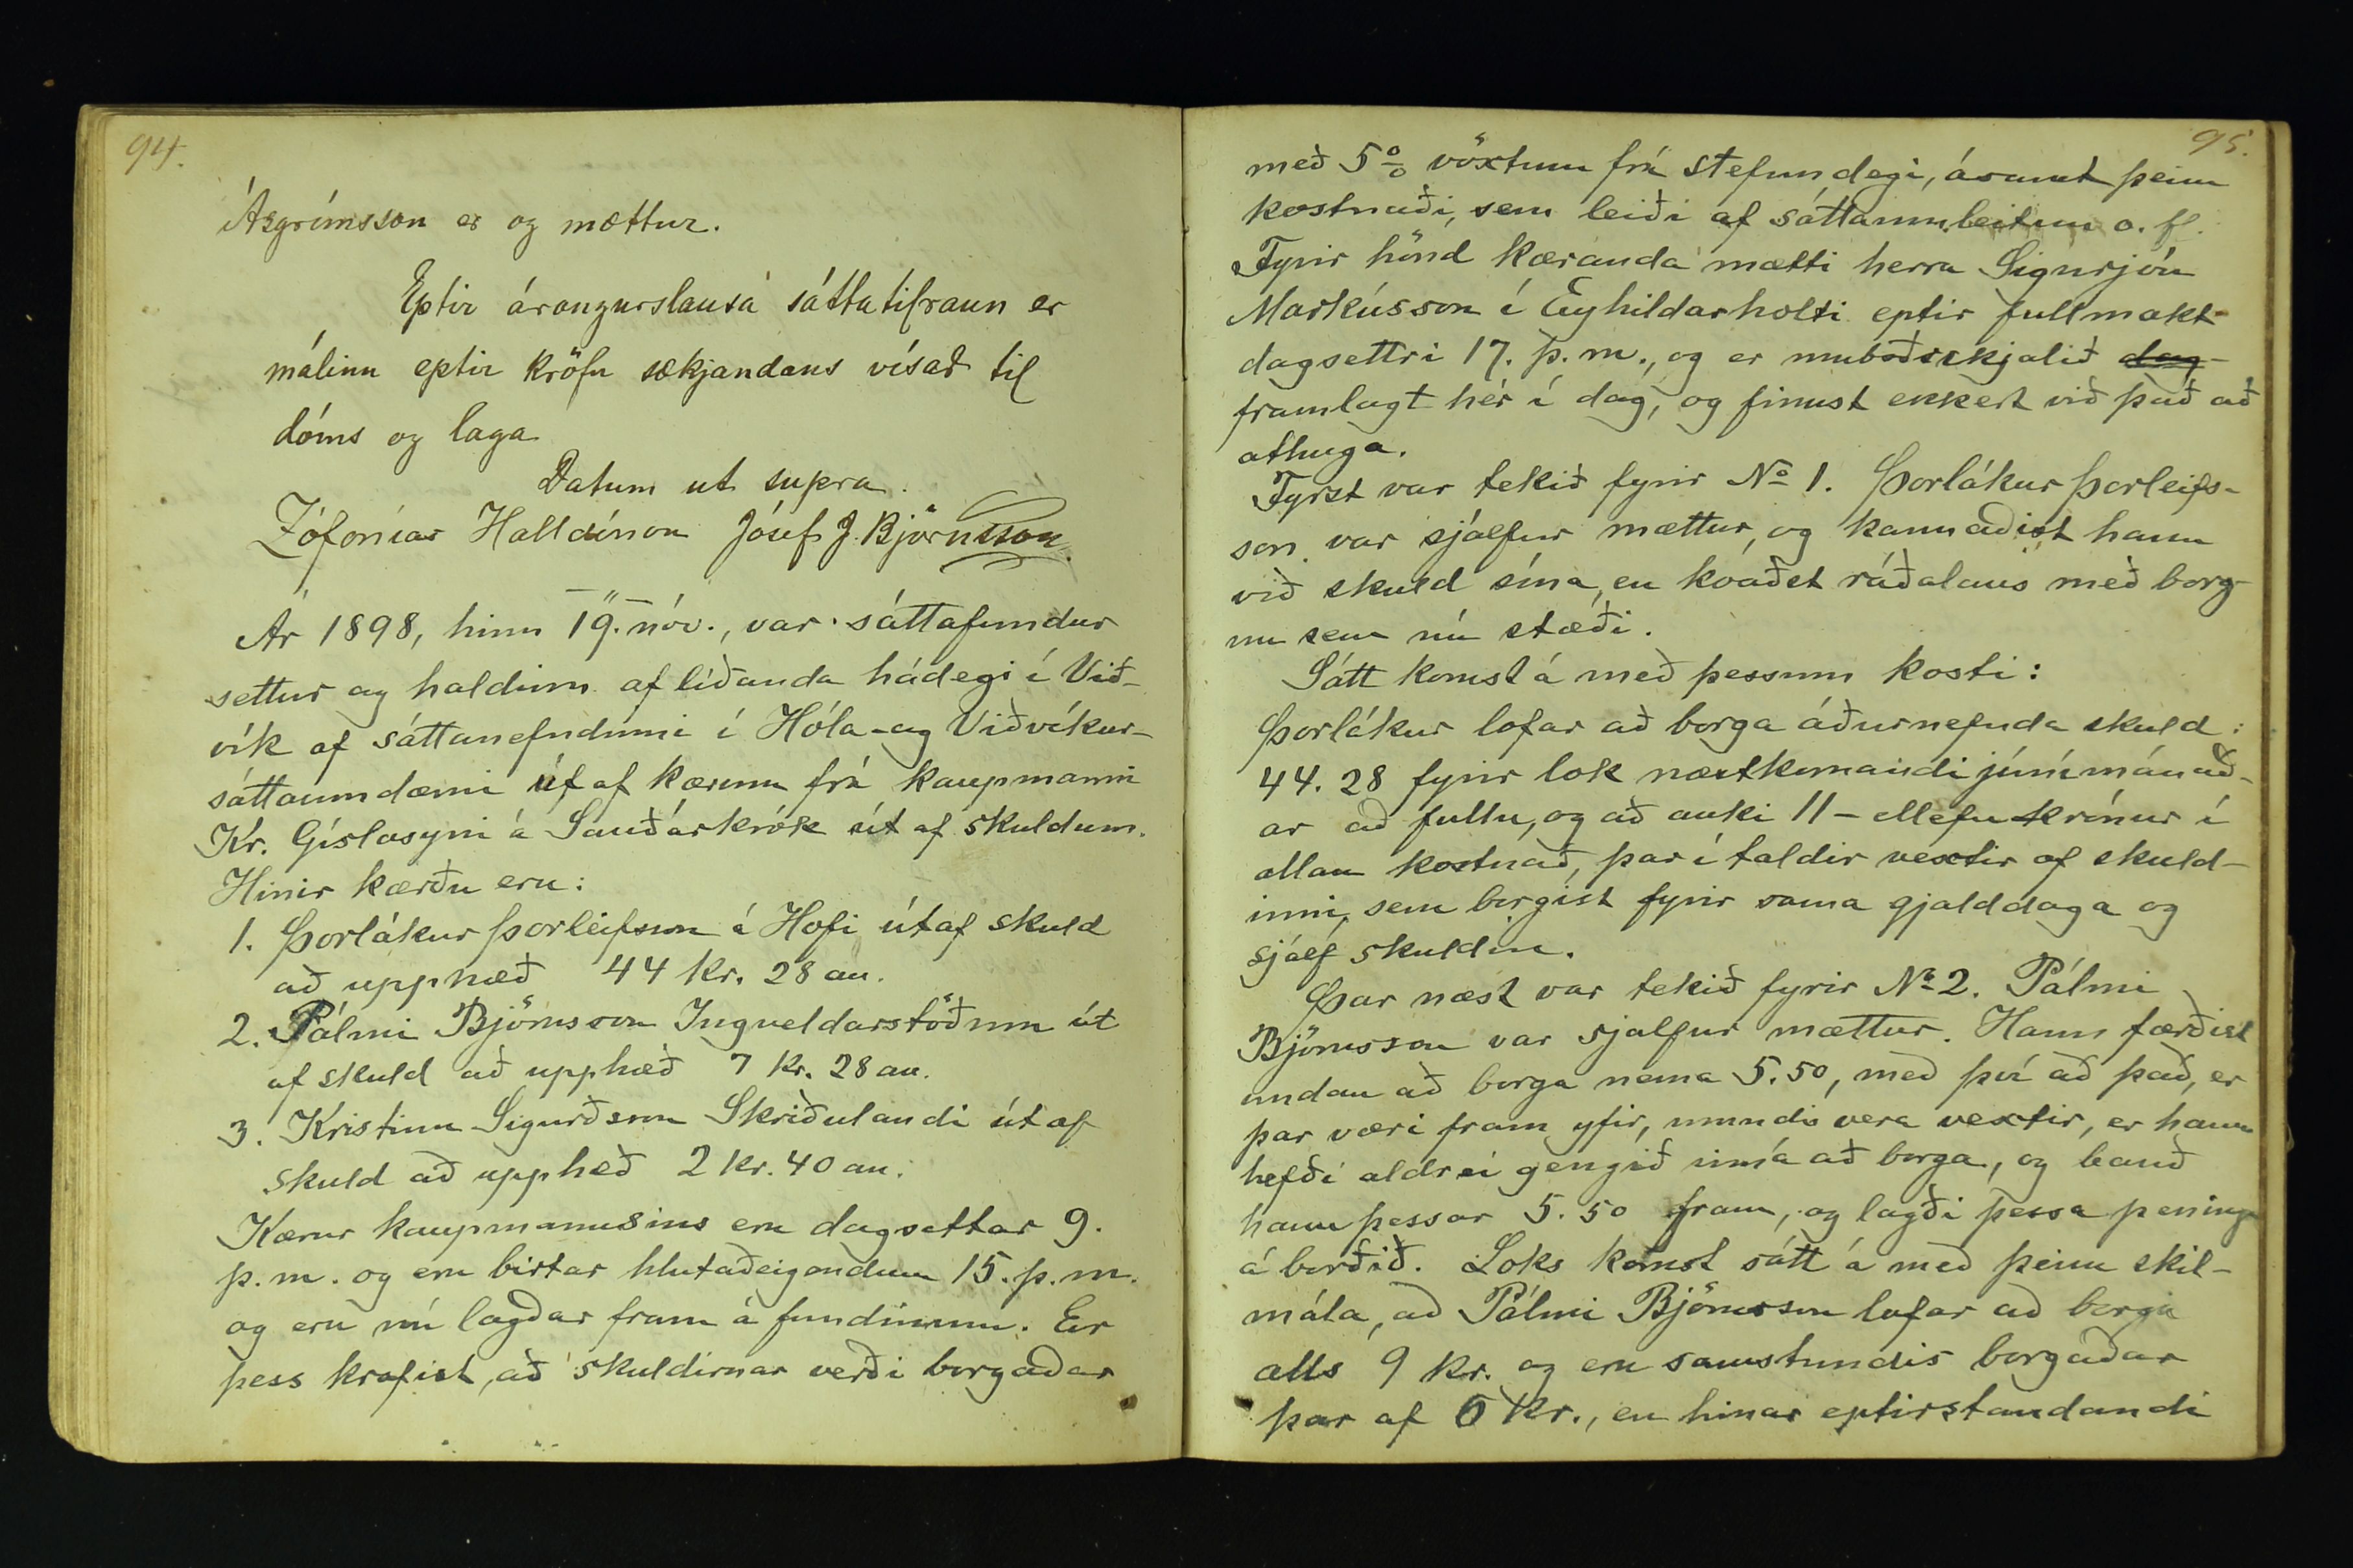 94.
Ásgrímsson er og mættur.
Eptir árangurslausa sáttatilraun er
málinu eptir kröfu sækjandans vísað til
dóms og laga
Datum ut supra.
Zófonías Halldórsson Jósef J. Björnsson.
Ár 1898, hinn 19. nóv., var sáttafundur
settur og haldinn af líðanda hádegi í Við-
vík af sáttanefndinni í Hóla- og Viðvíkur-
sáttaumdæmi út af kærum frá kaupmanni
Kr. Gíslasyni á Sauðárkrók út af skuldum.
Hinir kærðu eru:
1. Þorlákur Þorleifsson á Hofi útaf skuld
að upphæð 44 kr. 28 au.
2. Pálmi Björnsson Ingveldarstöðum út
af skuld að upphæð 7 kr. 28 au.
3. Kristinn Sigurðsson Skriðulandi útaf
skuld að upphæð 2 kr. 40 au.
Kærur kaupmannsins eru dagsettar 9.
þ.m. og eru birtar hlutaðeigendum 15. þ.m.
og eru nú lagðar fram á fundinum. Er
þess krafist, að skuldirnar verði borgaðar
95.
með 5% vöxtum frá stefnudegi, ásamt þeim
kostnaði, sem leiði af sáttaumleitun o. fl.
Fyrir hönd kæranda mætti herra Sigurjón
Markússon í Eyhildarholti eptir fullmakt
dagsettri 17. þ.m., og er umboðsskjalið dag-
framlagt hér í dag, og finnst ekkert við það að
athuga.
Fyrst var tekið fyrir No 1. Þorlákur Þorleifs-
son var sjálfur mættur, og kannaðist hann
við skuld sína, en kvaðst ráðalaus með borg-
un sem nú stæði.
Sátt komst á með þessum kosti:
Þorlákur lofar að borga áðurnefnda skuld:
44.28 fyrir lok næstkomandi júnímánað-
ar að fullu, og að auki 11 - ellefu krónur í
allan kostnað, þar í taldir vextir af skuld-
inni, sem borgist fyrir sama gjalddaga og
sjálf skuldin.
Þar næst var tekið fyrir No 2. Pálmi
Björnsson var sjalfur mættur. Hann færðist
undan að borga nema 5.50, með því að það, er
þar væri fram yfir, mundi vera vextir, er hann
hefði aldrei gengið inn á að borga, og bauð
hann þessar 5.50 fram, og lagði þessa peninga
á borðið. Loks komst sátt á með þeim skil-
mála, að Pálmi Björnsson lofar að borga
alls 9 kr. og eru samstundis borgaðar
þar af 6 kr., en hinar eptirstandandi